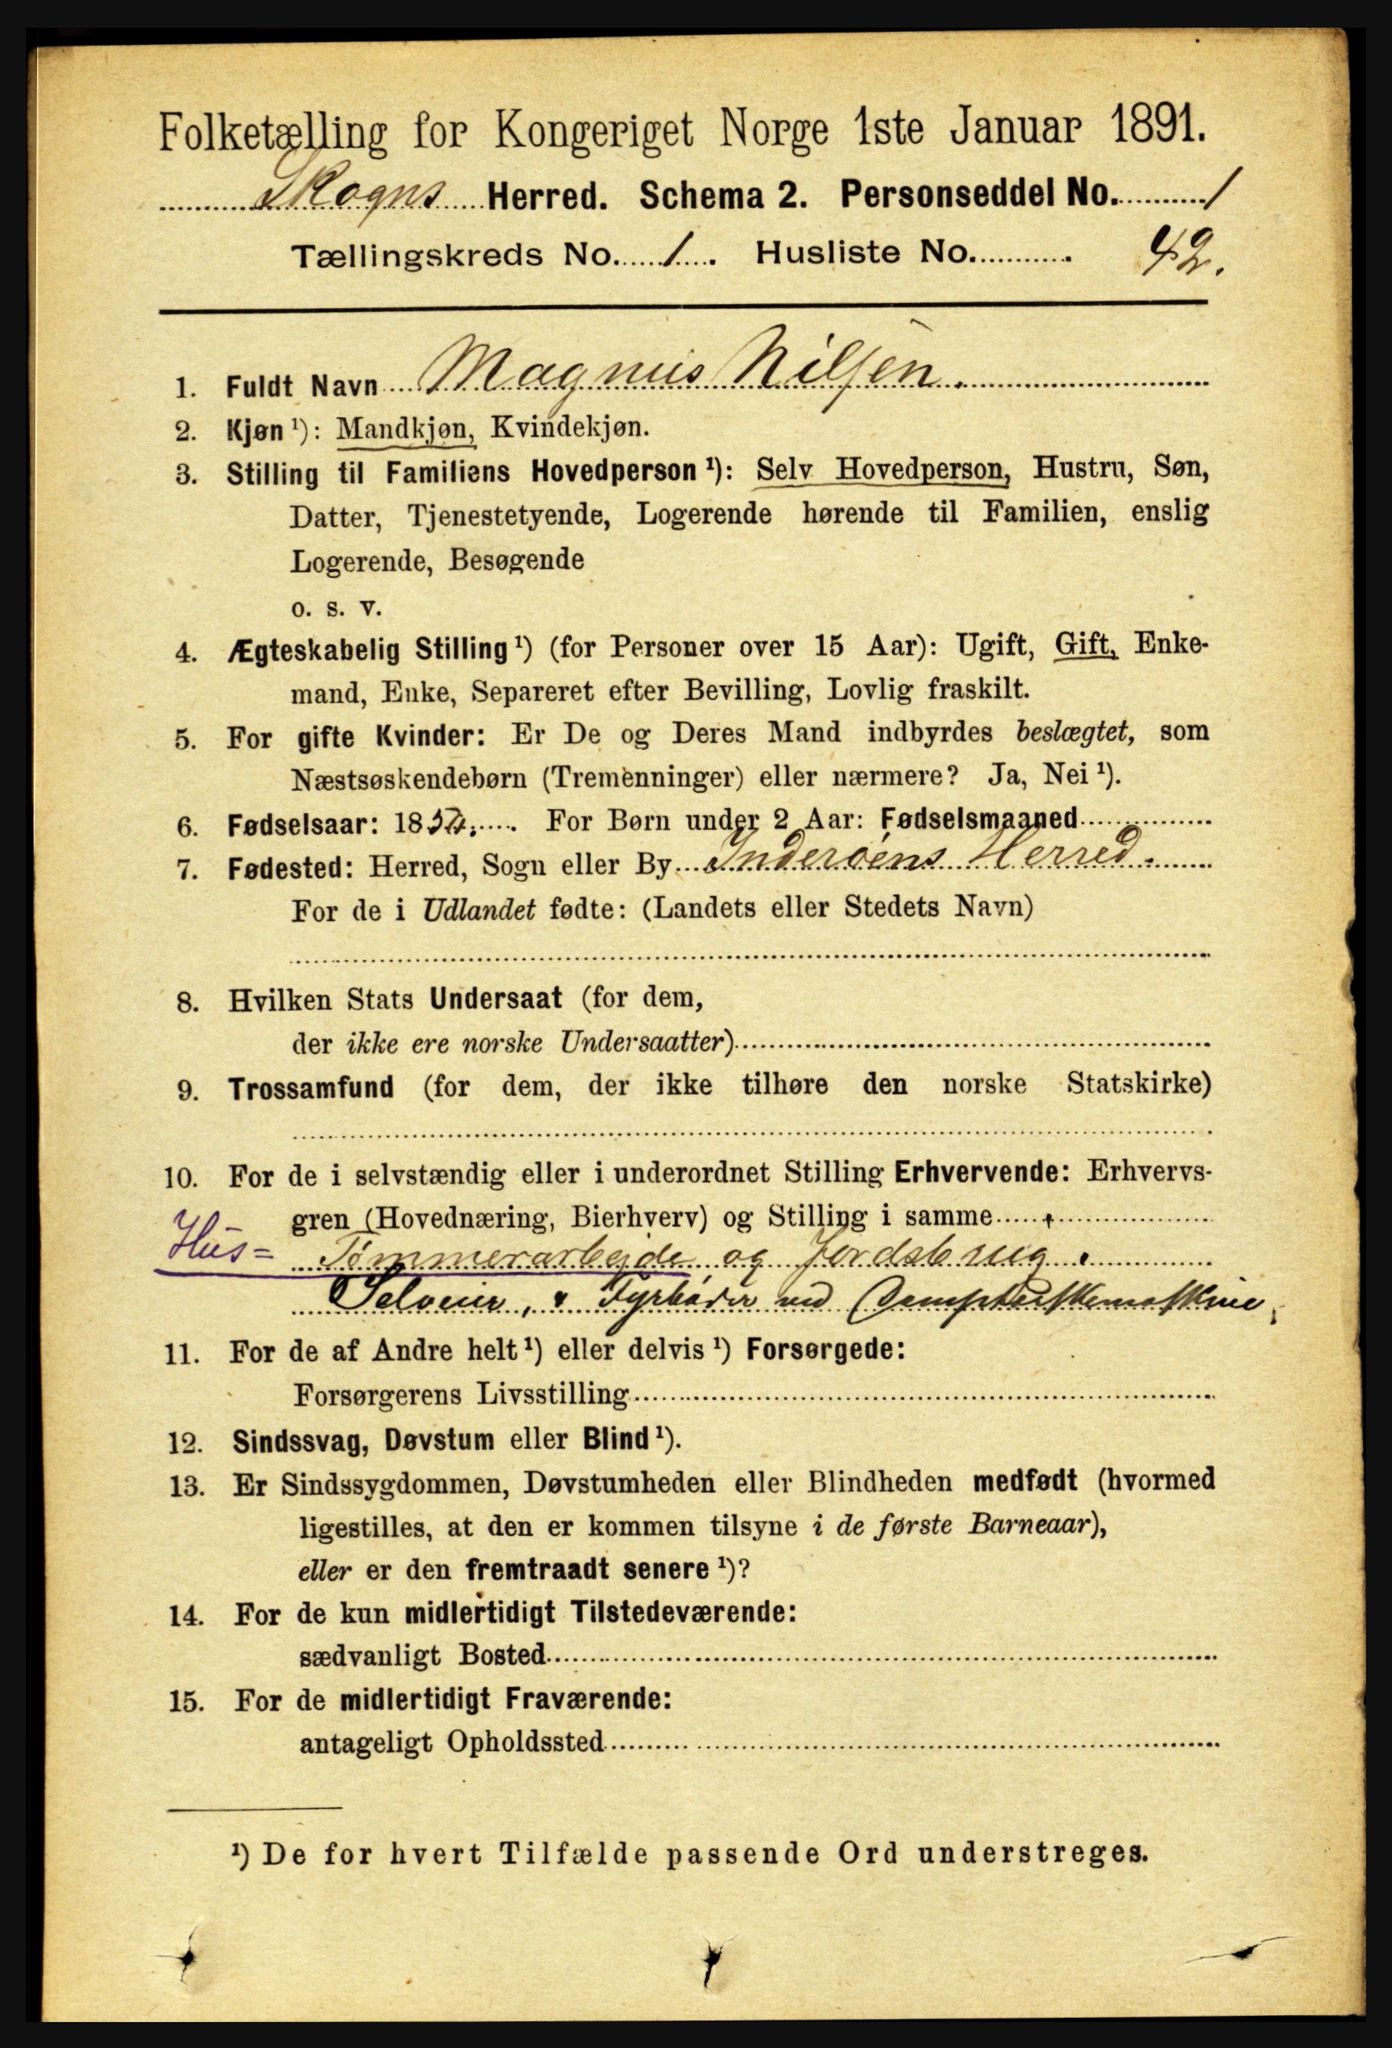 Folketælling for Kongeriget Norge 1ste Januar 1891.
Skogns Herred. Schema 2. Personseddel No. 1
Tællingskreds No. 1. Husliste No. 42.
1. Fuldt Navn Magnus Nilsen.
2. Kjøn ¹): Mandkjøn, Kvindekjøn.
3. Stilling til Familiens Hovedperson ¹): Selv Hovedperson, Hustru, Søn,
Datter, Tjenestetyende, Logerende hørende til Familien, enslig
Logerende, Besøgende
o. s. v.
4. Ægteskabelig Stilling ¹) (for Personer over 15 Aar): Ugift, Gift, Enke-
mand, Enke, Separeret efter Bevilling, Lovlig fraskilt.
5. For gifte Kvinder: Er De og Deres Mand indbyrdes beslægtet, som
Næstsøskendebørn (Tremenninger) eller nærmere? Ja, Nei ¹).
6. Fødselsaar: 1854. For Børn under 2 Aar: Fødselsmaaned
7. Fødested: Herred, Sogn eller By Inderøens Herred.
For de i Udlandet fødte: (Landets eller Stedets Navn)
8. Hvilken Stats Undersaat (for dem,
der ikke ere norske Undersaatter)
9. Trossamfund (for dem, der ikke tilhøre den norske Statskirke)
10. For de i selvstændig eller i underordnet Stilling Erhvervende: Erhvervs-
gren (Hovednæring, Bierhverv) og Stilling i samme
Hus- Tømmerarbejde og Jordsbrug.
Selveier, Fyrbøder ved
11. For de af Andre helt ¹) eller delvis ¹) Forsørgede:
Forsørgerens Livsstilling
12. Sindssvag, Døvstum eller Blind ¹).
13. Er Sindssygdommen, Døvstumheden eller Blindheden medfødt (hvormed
ligestilles, at den er kommen tilsyne i de første Barneaar),
eller er den fremtraadt senere ¹)?
14. For de kun midlertidigt Tilstedeværende:
sædvanligt Bosted
15. For de midlertidigt Fraværende:
antageligt Opholdssted
¹) De for hvert Tilfælde passende Ord understreges.